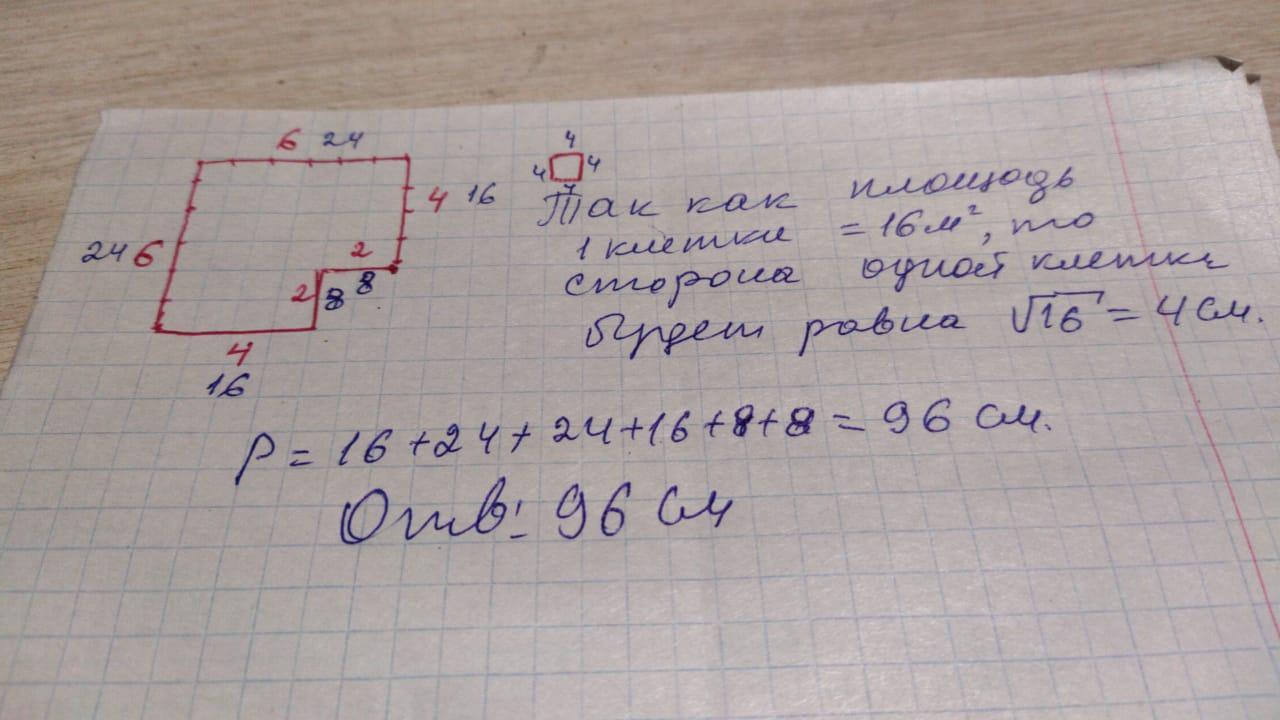 6 24
4 16
24 6
2
2 8 8
4
16
4
4 4
4
Так как площадь
1 клетки = 16м², то
сторона одной клетки
будет равна √16 = 4 см.
P = 16+24+24+16+8+8 = 96 см.
Отв: 96 см